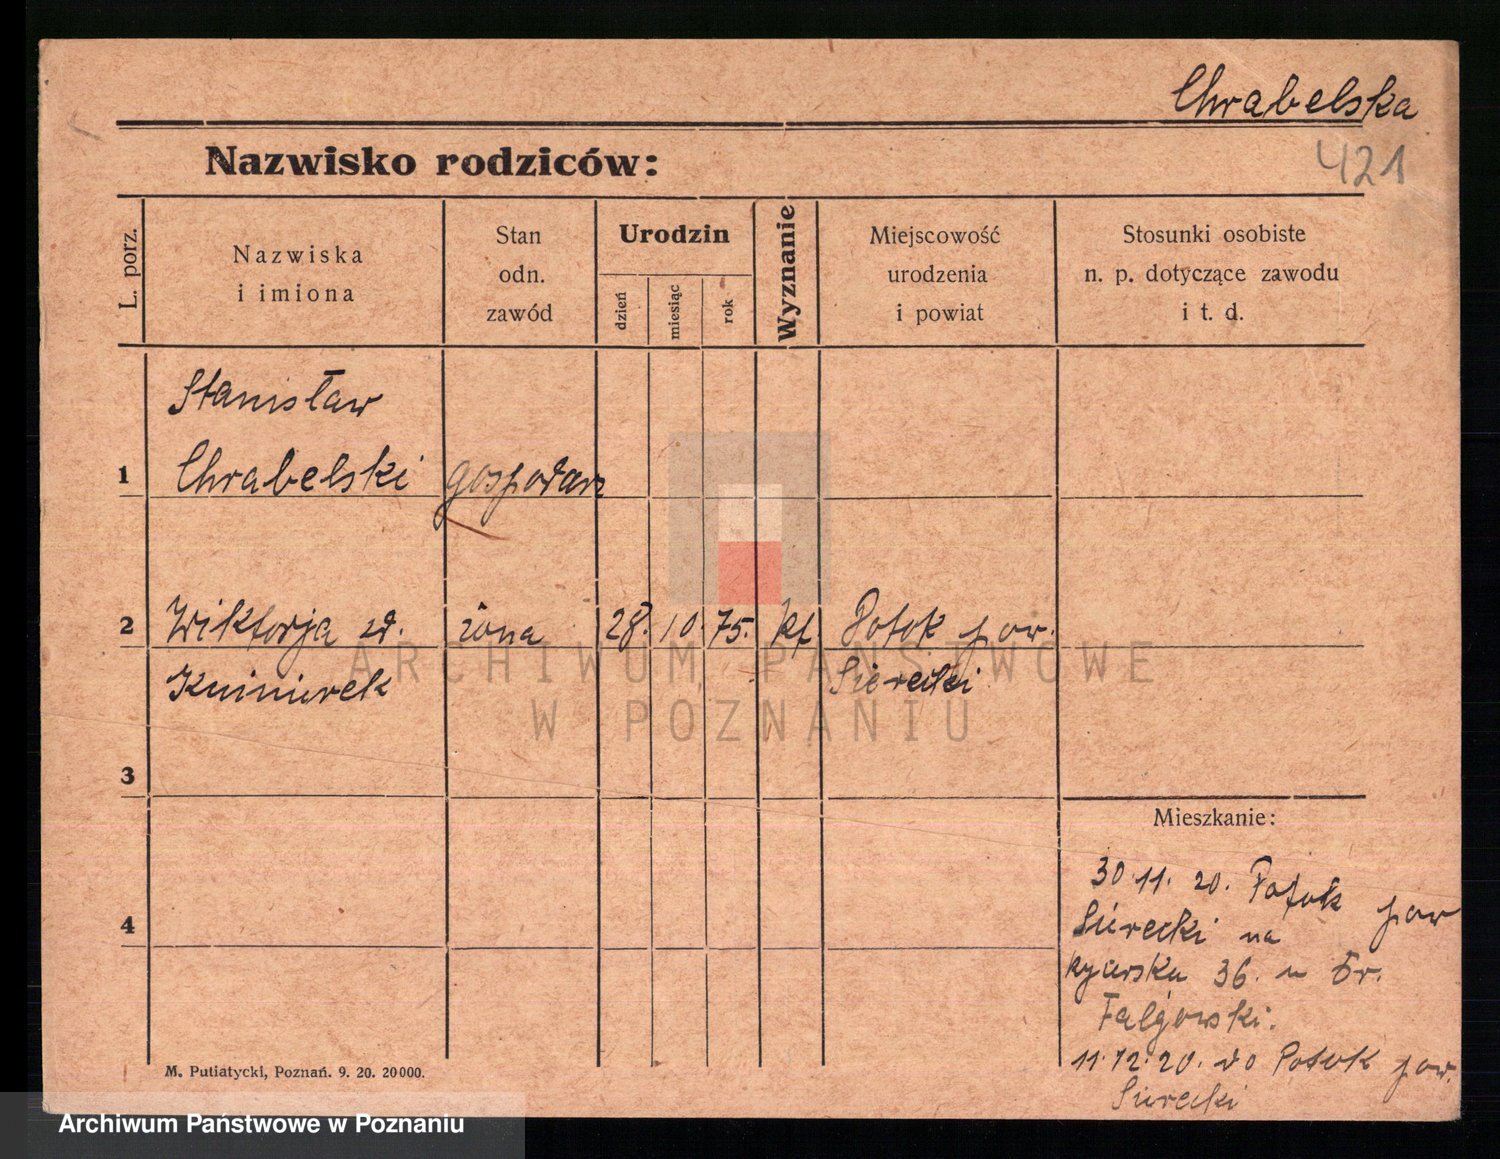 Chrabelska
421
Nazwisko rodziców:
L. porz.
Nazwiska
i imiona
Stan
odn.
zawód
Urodzin
dzień
miesiąc
rok
Wyznanie
Miejscowość
urodzenia
i powiat
Stosunki osobiste
n. p. dotyczące zawodu
i t. d.
Stanisław
1 Chrabelski gospodarz
2 Wiktorja zd. żona 28. 10. 75. kt. Potok pow.
Sieradzki
3
4
Mieszkanie:
30.11.20. Potok pow
na
36. u Fr.
Falgowski.
11.12.20. do Potok pow.
M. Putiatycki, Poznań. 9. 20. 20000.
ARCHIWUM PAŃSTWOWE
W POZNANIU
Archiwum Państwowe w Poznaniu